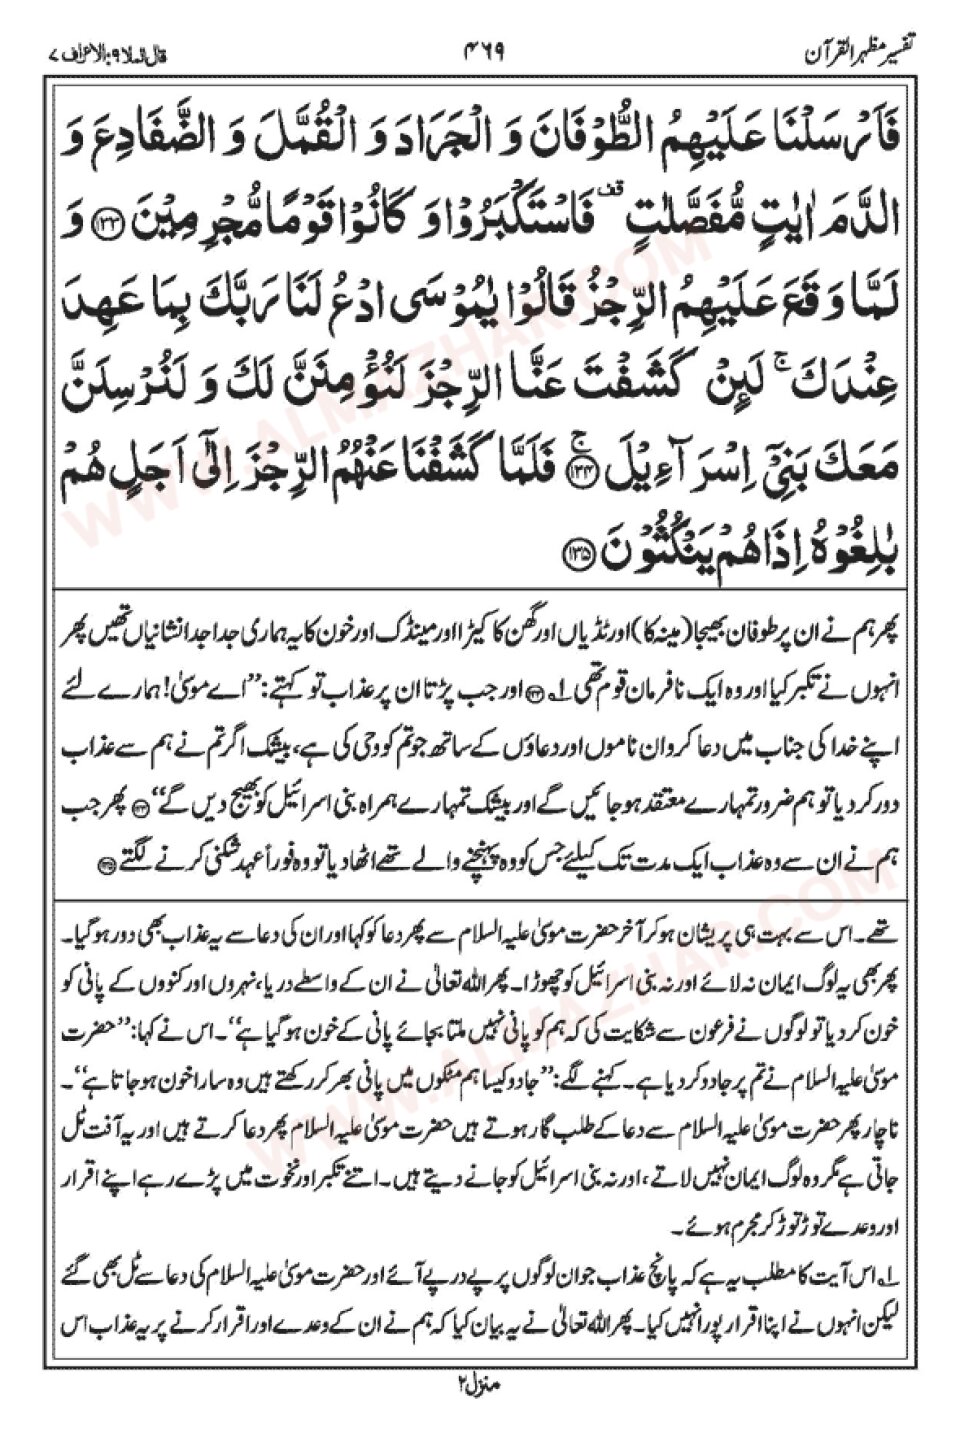 تفسیر مظہر القرآن
۴۶۹
قال الملا ۹: الاعراف ۷
فَاَرْسَلْنَا عَلَيْهِمُ الطُّوْفَانَ وَ الْجَرَادَ وَ الْقُمَّلَ وَ الضَّفَادِعَ وَ
الدَّمَ اٰيٰتٍ مُّفَصَّلٰتٍ ۫ فَاسْتَكْبَرُوْا وَ كَانُوْا قَوْمًا مُّجْرِمِيْنَ ۝۱۳۳ وَ
لَمَّا وَقَعَ عَلَيْهِمُ الرِّجْزُ قَالُوْا يٰمُوْسَى ادْعُ لَنَا رَبَّكَ بِمَا عَهِدَ
عِنْدَكَ ۚ لَىِٕنْ كَشَفْتَ عَنَّا الرِّجْزَ لَنُؤْمِنَنَّ لَكَ وَ لَنُرْسِلَنَّ
مَعَكَ بَنِيْۤ اِسْرَآءِيْلَ ۝۱۳۴ ۚ فَلَمَّا كَشَفْنَا عَنْهُمُ الرِّجْزَ اِلٰۤى اَجَلٍ هُمْ
بٰلِغُوْهُ اِذَا هُمْ يَنْكُثُوْنَ ۝۱۳۵
پھر ہم نے ان پر طوفان بھیجا (مینہ کا) اور ٹڈیاں اور گھن کا کیڑا اور مینڈک اور خون کا یہ ہماری جدا جدا نشانیاں تھیں پھر
انہوں نے تکبر کیا اور وہ ایک نافرمان قوم تھی ۱؎ ۝۱۳۳ اور جب پڑتا ان پر عذاب تو کہتے: ’’اے موسیٰ! ہمارے لئے
اپنے خدا کی جناب میں دعا کرو ان ناموں اور دعاؤں کے ساتھ جو تم کو وحی کی ہے، بیشک اگر تم نے ہم سے عذاب
دور کر دیا تو ہم ضرور تمہارے معتقد ہو جائیں گے اور بیشک تمہارے ہمراہ بنی اسرائیل کو بھیج دیں گے‘‘ ۝۱۳۴ پھر جب
ہم نے ان سے وہ عذاب ایک مدت تک کیلئے جس کو وہ پہنچنے والے تھے اٹھا دیا تو وہ فوراً عہد شکنی کرنے لگتے ۝۱۳۵
تھے۔ اس سے بہت ہی پریشان ہو کر آخر حضرت موسیٰ علیہ السلام سے پھر دعا کو کہا اور ان کی دعا سے یہ عذاب بھی دور ہو گیا۔
پھر بھی یہ لوگ ایمان نہ لائے اور نہ بنی اسرائیل کو چھوڑا۔ پھر اللہ تعالیٰ نے ان کے واسطے دریا، نہروں اور کنووں کے پانی کو
خون کر دیا تو لوگوں نے فرعون سے شکایت کی کہ ہم کو پانی نہیں ملتا بجائے پانی کے خون ہو گیا ہے‘‘۔ اس نے کہا: ’’حضرت
موسیٰ علیہ السلام نے تم پر جادو کر دیا ہے۔ کہنے لگے: ’’جادو کیسا ہم مٹکوں میں پانی بھر کر رکھتے ہیں وہ سارا خون ہو جاتا ہے‘‘۔
ناچار پھر حضرت موسیٰ علیہ السلام سے دعا کے طلب گار ہوتے ہیں حضرت موسیٰ علیہ السلام پھر دعا کرتے ہیں اور یہ آفت ٹل
جاتی ہے مگر وہ لوگ ایمان نہیں لاتے، اور نہ بنی اسرائیل کو جانے دیتے ہیں۔ اتنے تکبر اور نخوت میں پڑے رہے اپنے اقرار
اور وعدے توڑ توڑ کر مجرم ہوئے۔
۱؎ اس آیت کا مطلب یہ ہے کہ پانچ عذاب جو ان لوگوں پر پے در پے آئے اور حضرت موسیٰ علیہ السلام کی دعا سے ٹل بھی گئے
لیکن انہوں نے اپنا اقرار پورا نہیں کیا۔ پھر اللہ تعالیٰ نے یہ بیان کیا کہ ہم نے ان کے وعدے اور اقرار کرنے پر یہ عذاب اس
منزل ۲
WWW.ALMAZHAR.COM
WWW.ALMAZHAR.COM